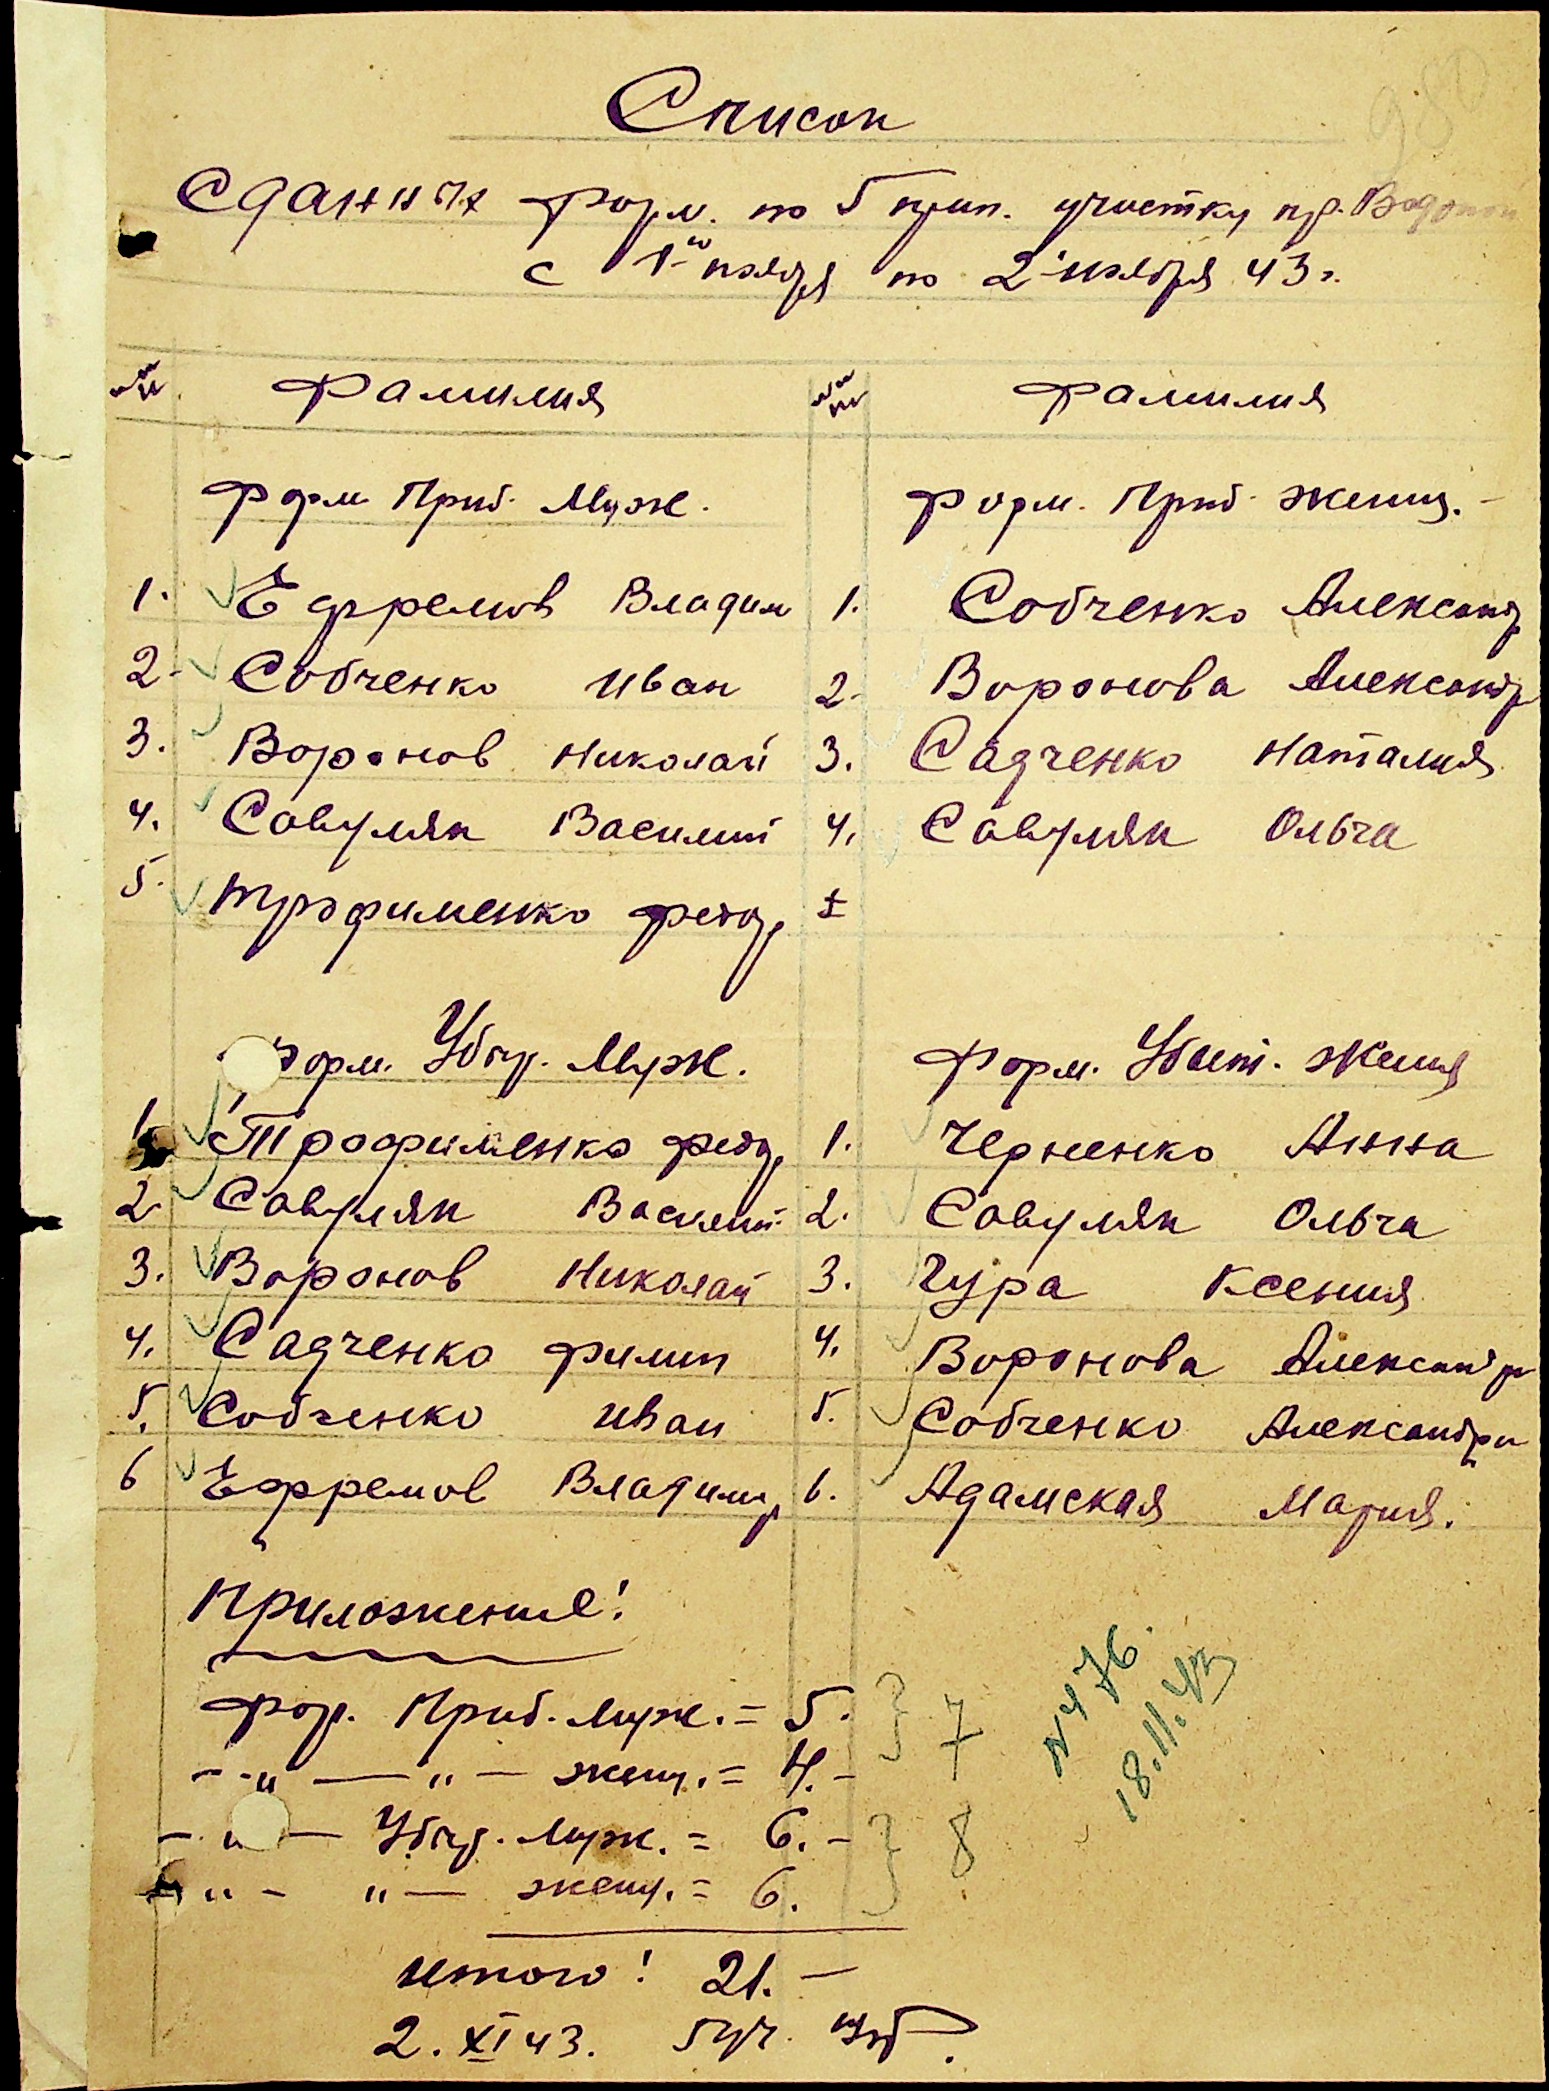 Список
Сданных форм. по 5 прип. участку пр. Водопой
с 1го ноября по 2 ноября 43 г.
№№ Фамилия №№ Фамилия
Форм Приб. Муж. Форм. Приб. женщ. -
1. Ефремов Владим 1. Собченко Александр
2- Собченко Иван 2- Воронова Александр
3. Воронов Николай 3. Садченко Наталия
4. Савуляк Василий 4. Савуляк Ольга
5. Трофименко Федор 5
Форм. Убыт. Муж. Форм. Убыт. женщ
1. Трофименко Федор 1. Черненко Анна
2 Савуляк Василий 2. Савуляк Ольга
3. Воронов Николай 3. Чура Ксения
4. Садченко Филип 4. Воронова Александр
5. Собченко Иван 5. Собченко Александра
6 Ефремов Владимир 6. Адамская Мария.
Приложения!
фор. Приб. Муж. = 5. } 7
- " — " — женщ. = 4. -
- " — Убыт. Муж. = 6. - } 8
- " - " — женщ. = 6.
№476.
18.11.43
Итого! 21. —
2. XI 43. 5 уч.